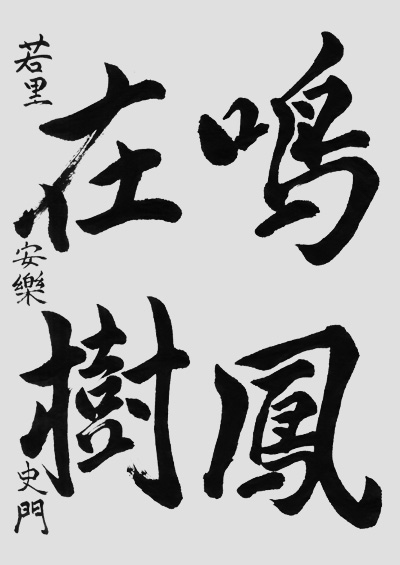 鳴鳳
在樹
若里 安樂 史門